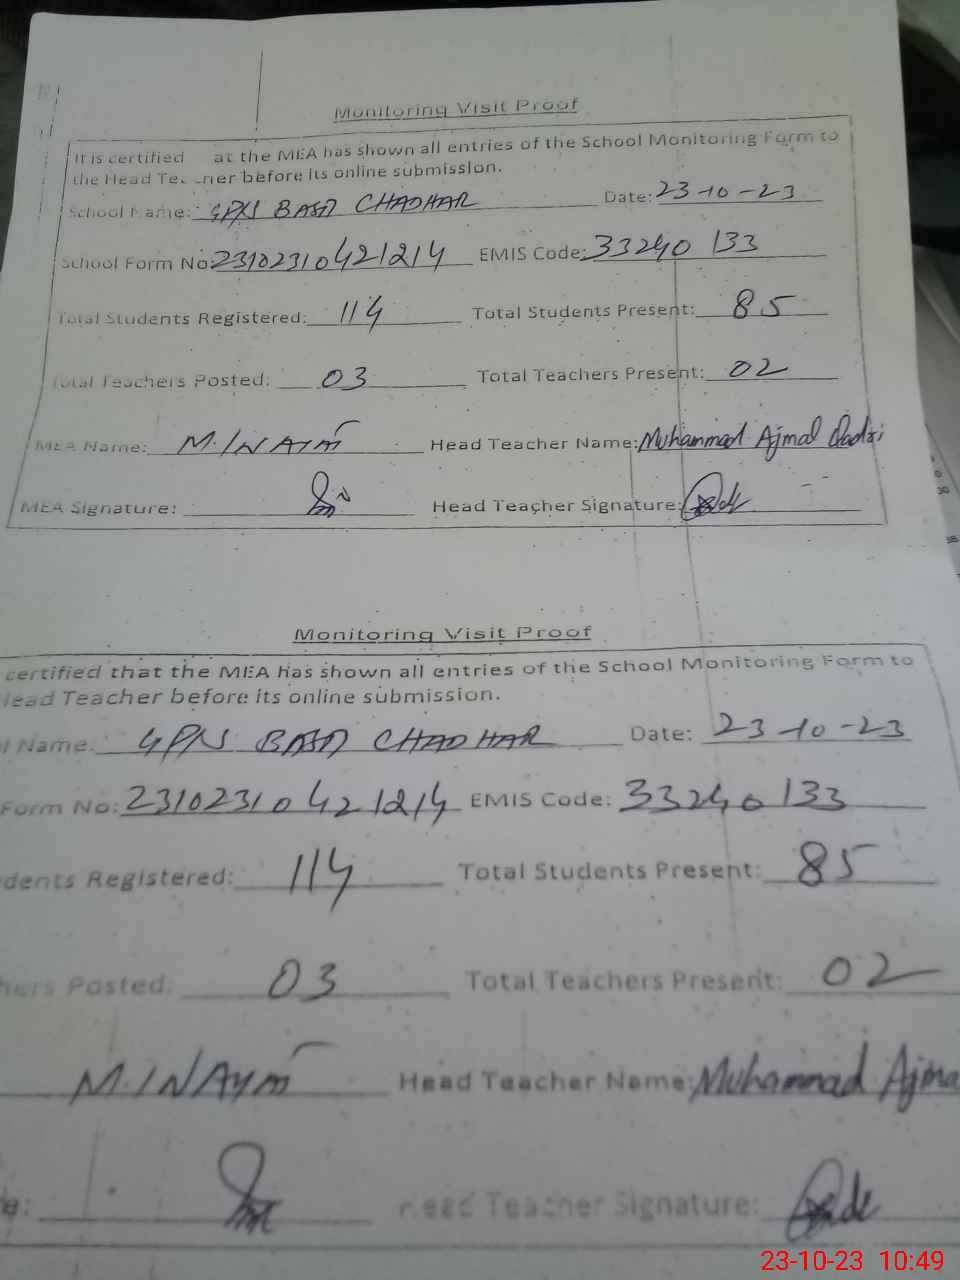 Monitoring Visit Proof
It is certified at the MEA has shown all entries of the School Monitoring Form to
the Head before its online submission.
School Name: GPS BASTI CHADHAR Date: 23-10-23
School Form No: 23102310421214 EMIS Code: 33240133
Total Students Registered: 114 Total Students Present: 85
Total Teachers Posted: 03 Total Teachers Present: 02
MEA Name: M. INAYAT Head Teacher Name: Muhammad Ajmal Qadri
MEA Signature: Head Teacher Signature:
Monitoring Visit Proof
certified that the MEA has shown all entries of the School Monitoring Form to
Head Teacher before its online submission.
l Name: GPS BASTI CHADHAR Date: 23-10-23
Form No: 23102310421214 EMIS Code: 33240133
dents Registered: 114 Total Students Present: 85
hers Posted: 03 Total Teachers Present: 02
M. INAYAT Head Teacher Name: Muhammad Ajma
e: Head Teacher Signature:
23-10-23 10:49